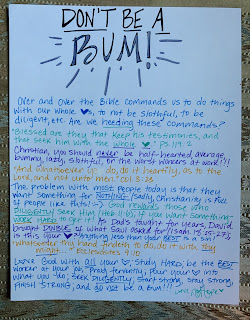 DON'T BE A
BUM!
Over and over the Bible commands us to do things
with our whole ♥s, to not be slothful, to be
diligent, etc. Are we heeding these commands?
Blessed are they that keep his testimonies, and
that seek him with the whole ♥." Ps. 119:2
Christian, you should never be half-hearted, average,
bummy, lazy, slothful, or the worst workers at work!!!
"And whatsoever ye do, do it heartily, as to the
Lord, and not unto men." Col 3:23
The problem with most people today is that they
want something for NOTHING. Sadly, Christianity is full
of people like this! God rewards those who
DILIGENTLY seek Him (Heb 11:6), if you want something-
work HARD to get it! In Dad's tauthe for years, David
brought DOUBLE of what Saul asked for
is this your ♥? Anything less than your BEST is a sin!
"Whatsoever thy hand findeth to do, do it with thy
might." Ecclesiastes 9:10
Love God with ALL your ♥, Study HARD, be the BEST
worker at your job, Pray fervently, Pour your ♥ into
what you do, Seek DILIGENTLY, Start strong, stay strong,
FINISH STRONG, and do not be a bum!